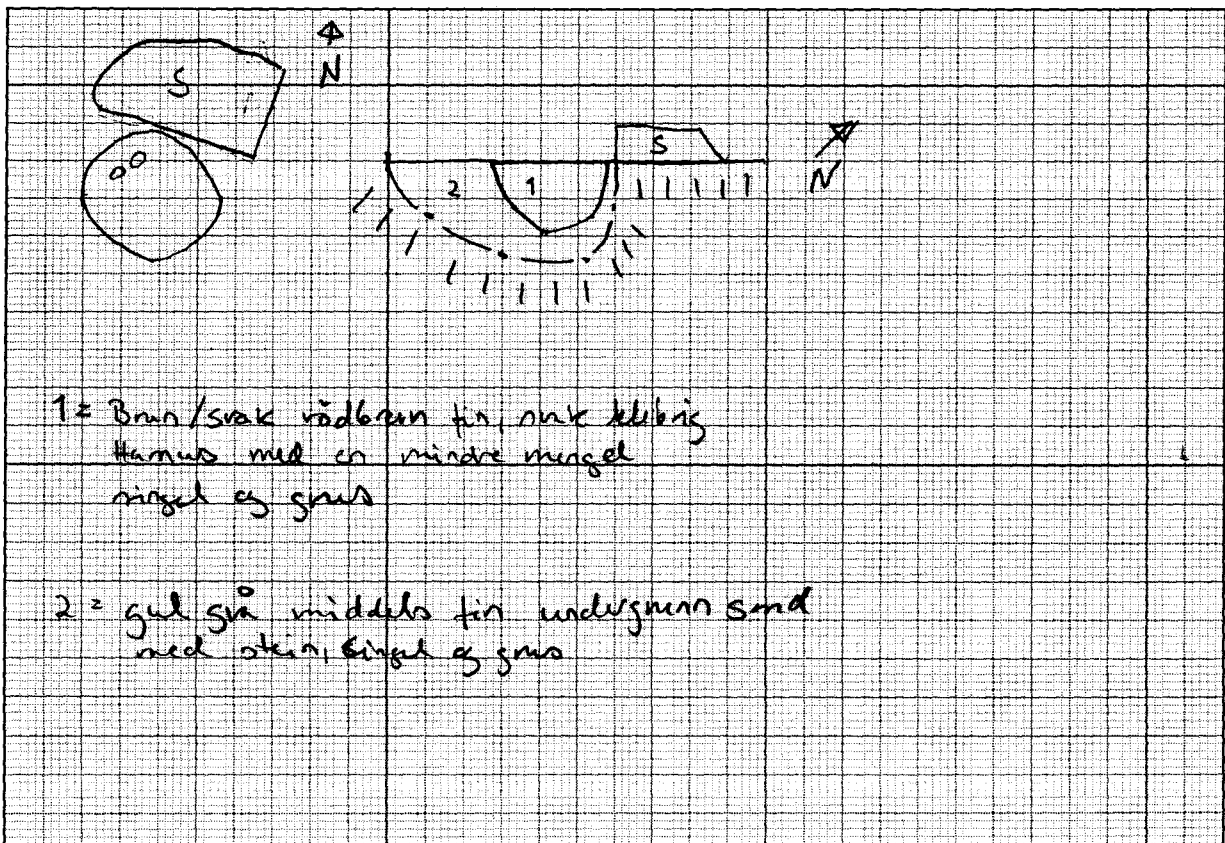 N
S
S
N
2 1
1 = Brun/svak rödbrun fin, klebrig
Humus med en mindre mengde
singel og grus
2 = gul grå middels fin undergrunn sand
med stein, singel og grus